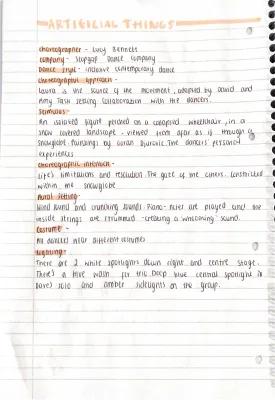 ARTIFICIAL THINGS
choreographer - Lucy Bennett
company - Stopgap Dance Company
Dance style - inclusive contemporary dance
choreographic approach -
Laura is the source of the movement, adapted by David and
Amy. Task setting collaboration with the dancers.
Stimulus -
An isolated figure perched on a collapsed wheelchair, in a
snow covered landscape - viewed from afar as if through a
snowglobe. Paintings by Goran Djurovic. The dancers' personal
experiences
choreographic intention -
Life's limitations and resolution. The gaze of the others. Constricted
within the snowglobe
Aural setting -
Wind sound and crunching sounds. Piano - notes are played and the
inside strings are strummed - creating a whooming sound.
Costume -
All dancers wear different costumes
Lighting -
There are 2 white spotlights down right and centre stage.
There's a blue wash for trio. Deep blue central spotlight in
Dave's solo and amber sidelights on the group.